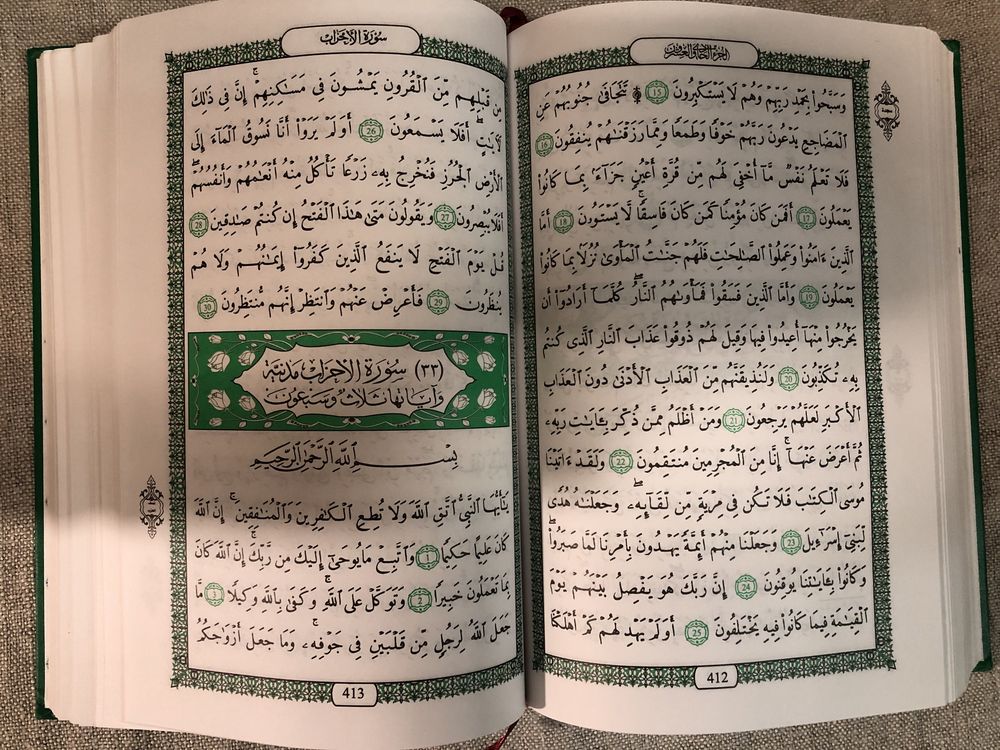 الجزء الحادي والعشرون
وَسَبَّحُوا۟ بِحَمْدِ رَبِّهِمْ وَهُمْ لَا يَسْتَكْبِرُونَ 15 ۞ تَتَجَافَىٰ جُنُوبُهُمْ عَنِ
الْمَضَاجِعِ يَدْعُونَ رَبَّهُمْ خَوْفًا وَطَمَعًا وَمِمَّا رَزَقْنَاهُمْ يُنفِقُونَ 16
فَلَا تَعْلَمُ نَفْسٌ مَّآ أُخْفِيَ لَهُم مِّن قُرَّةِ أَعْيُنٍ جَزَآءً بِمَا كَانُوا۟
يَعْمَلُونَ 17 أَفَمَن كَانَ مُؤْمِنًا كَمَن كَانَ فَاسِقًا ۚ لَّا يَسْتَوُۥنَ 18 أَمَّا
الَّذِينَ ءَامَنُوا۟ وَعَمِلُوا۟ الصَّٰلِحَٰتِ فَلَهُمْ جَنَّٰتُ الْمَأْوَىٰ نُزُلًا بِمَا كَانُوا۟
يَعْمَلُونَ 19 وَأَمَّا الَّذِينَ فَسَقُوا۟ فَمَأْوَىٰهُمُ النَّارُ ۖ كُلَّمَآ أَرَادُوٓا۟ أَن
يَخْرُجُوا۟ مِنْهَآ أُعِيدُوا۟ فِيهَا وَقِيلَ لَهُمْ ذُوقُوا۟ عَذَابَ النَّارِ الَّذِى كُنتُم
بِهِۦ تُكَذِّبُونَ 20 وَلَنُذِيقَنَّهُم مِّنَ الْعَذَابِ الْأَدْنَىٰ دُونَ الْعَذَابِ
الْأَكْبَرِ لَعَلَّهُمْ يَرْجِعُونَ 21 وَمَنْ أَظْلَمُ مِمَّن ذُكِّرَ بِـَٔايَٰتِ رَبِّهِۦ
ثُمَّ أَعْرَضَ عَنْهَآ ۚ إِنَّا مِنَ الْمُجْرِمِينَ مُنتَقِمُونَ 22 وَلَقَدْ ءَاتَيْنَا
مُوسَى الْكِتَٰبَ فَلَا تَكُن فِى مِرْيَةٍ مِّن لِّقَآئِهِۦ ۖ وَجَعَلْنَٰهُ هُدًى
لِّبَنِىٓ إِسْرَٰٓءِيلَ 23 وَجَعَلْنَا مِنْهُمْ أَئِمَّةً يَهْدُونَ بِأَمْرِنَا لَمَّا صَبَرُوا۟ ۖ
وَكَانُوا۟ بِـَٔايَٰتِنَا يُوقِنُونَ 24 إِنَّ رَبَّكَ هُوَ يَفْصِلُ بَيْنَهُمْ يَوْمَ
الْقِيَٰمَةِ فِيمَا كَانُوا۟ فِيهِ يَخْتَلِفُونَ 25 أَوَلَمْ يَهْدِ لَهُمْ كَمْ أَهْلَكْنَا
412
سورة الأحزاب
مِن قَبْلِهِم مِّنَ الْقُرُونِ يَمْشُونَ فِى مَسَٰكِنِهِمْ ۚ إِنَّ فِى ذَٰلِكَ
لَأٓيَٰتٍ ۖ أَفَلَا يَسْمَعُونَ 26 أَوَلَمْ يَرَوْا۟ أَنَّا نَسُوقُ الْمَآءَ إِلَى
الْأَرْضِ الْجُرُزِ فَنُخْرِجُ بِهِۦ زَرْعًا تَأْكُلُ مِنْهُ أَنْعَٰمُهُمْ وَأَنفُسُهُمْ ۖ
أَفَلَا يُبْصِرُونَ 27 وَيَقُولُونَ مَتَىٰ هَٰذَا الْفَتْحُ إِن كُنتُمْ صَٰدِقِينَ 28
قُلْ يَوْمَ الْفَتْحِ لَا يَنفَعُ الَّذِينَ كَفَرُوٓا۟ إِيمَٰنُهُمْ وَلَا هُمْ
يُنظَرُونَ 29 فَأَعْرِضْ عَنْهُمْ وَانتَظِرْ إِنَّهُم مُّنتَظِرُونَ 30
(٣٣) سورة الأحزاب مدنية
وآياتها ثلاث وسبعون
بِسْمِ اللَّهِ الرَّحْمَٰنِ الرَّحِيمِ
يَٰٓأَيُّهَا النَّبِىُّ اتَّقِ اللَّهَ وَلَا تُطِعِ الْكَٰفِرِينَ وَالْمُنَٰفِقِينَ ۗ إِنَّ اللَّهَ
كَانَ عَلِيمًا حَكِيمًا 1 وَاتَّبِعْ مَا يُوحَىٰٓ إِلَيْكَ مِن رَّبِّكَ ۚ إِنَّ اللَّهَ كَانَ
بِمَا تَعْمَلُونَ خَبِيرًا 2 وَتَوَكَّلْ عَلَى اللَّهِ ۚ وَكَفَىٰ بِاللَّهِ وَكِيلًا 3 مَّا
جَعَلَ اللَّهُ لِرَجُلٍ مِّن قَلْبَيْنِ فِى جَوْفِهِۦ ۚ وَمَا جَعَلَ أَزْوَٰجَكُمُ
413